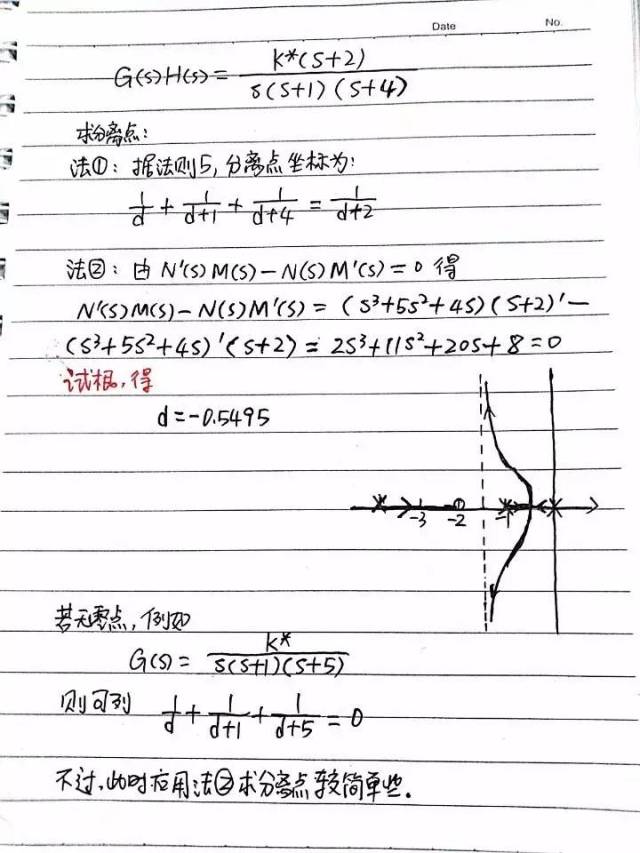 Date No.
G(s)H(s) = K*(S+2) / S(S+1)(S+4)
求分离点:
法①: 据法则5, 分离点坐标为:
1/d + 1/d+1 + 1/d+4 = 1/d+2
法②: 由 N'(s)M(s) - N(s)M'(s) = 0 得
N'(s)M(s) - N(s)M'(s) = (S³+5S²+4S)(S+2)' -
(S³+5S²+4S)'(S+2) = 2S³+11S²+20S+8=0
试根, 得
d = -0.5495
-3 -2 -1
若无零点, 例如
G(s) = K* / S(S+1)(S+5)
则可列 1/d + 1/d+1 + 1/d+5 = 0
不过, 此时应用法②求分离点较简单些.